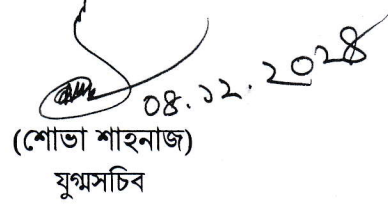 ০৪.১২.২০২৪
(শোভা শাহনাজ)
যুগ্মসচিব